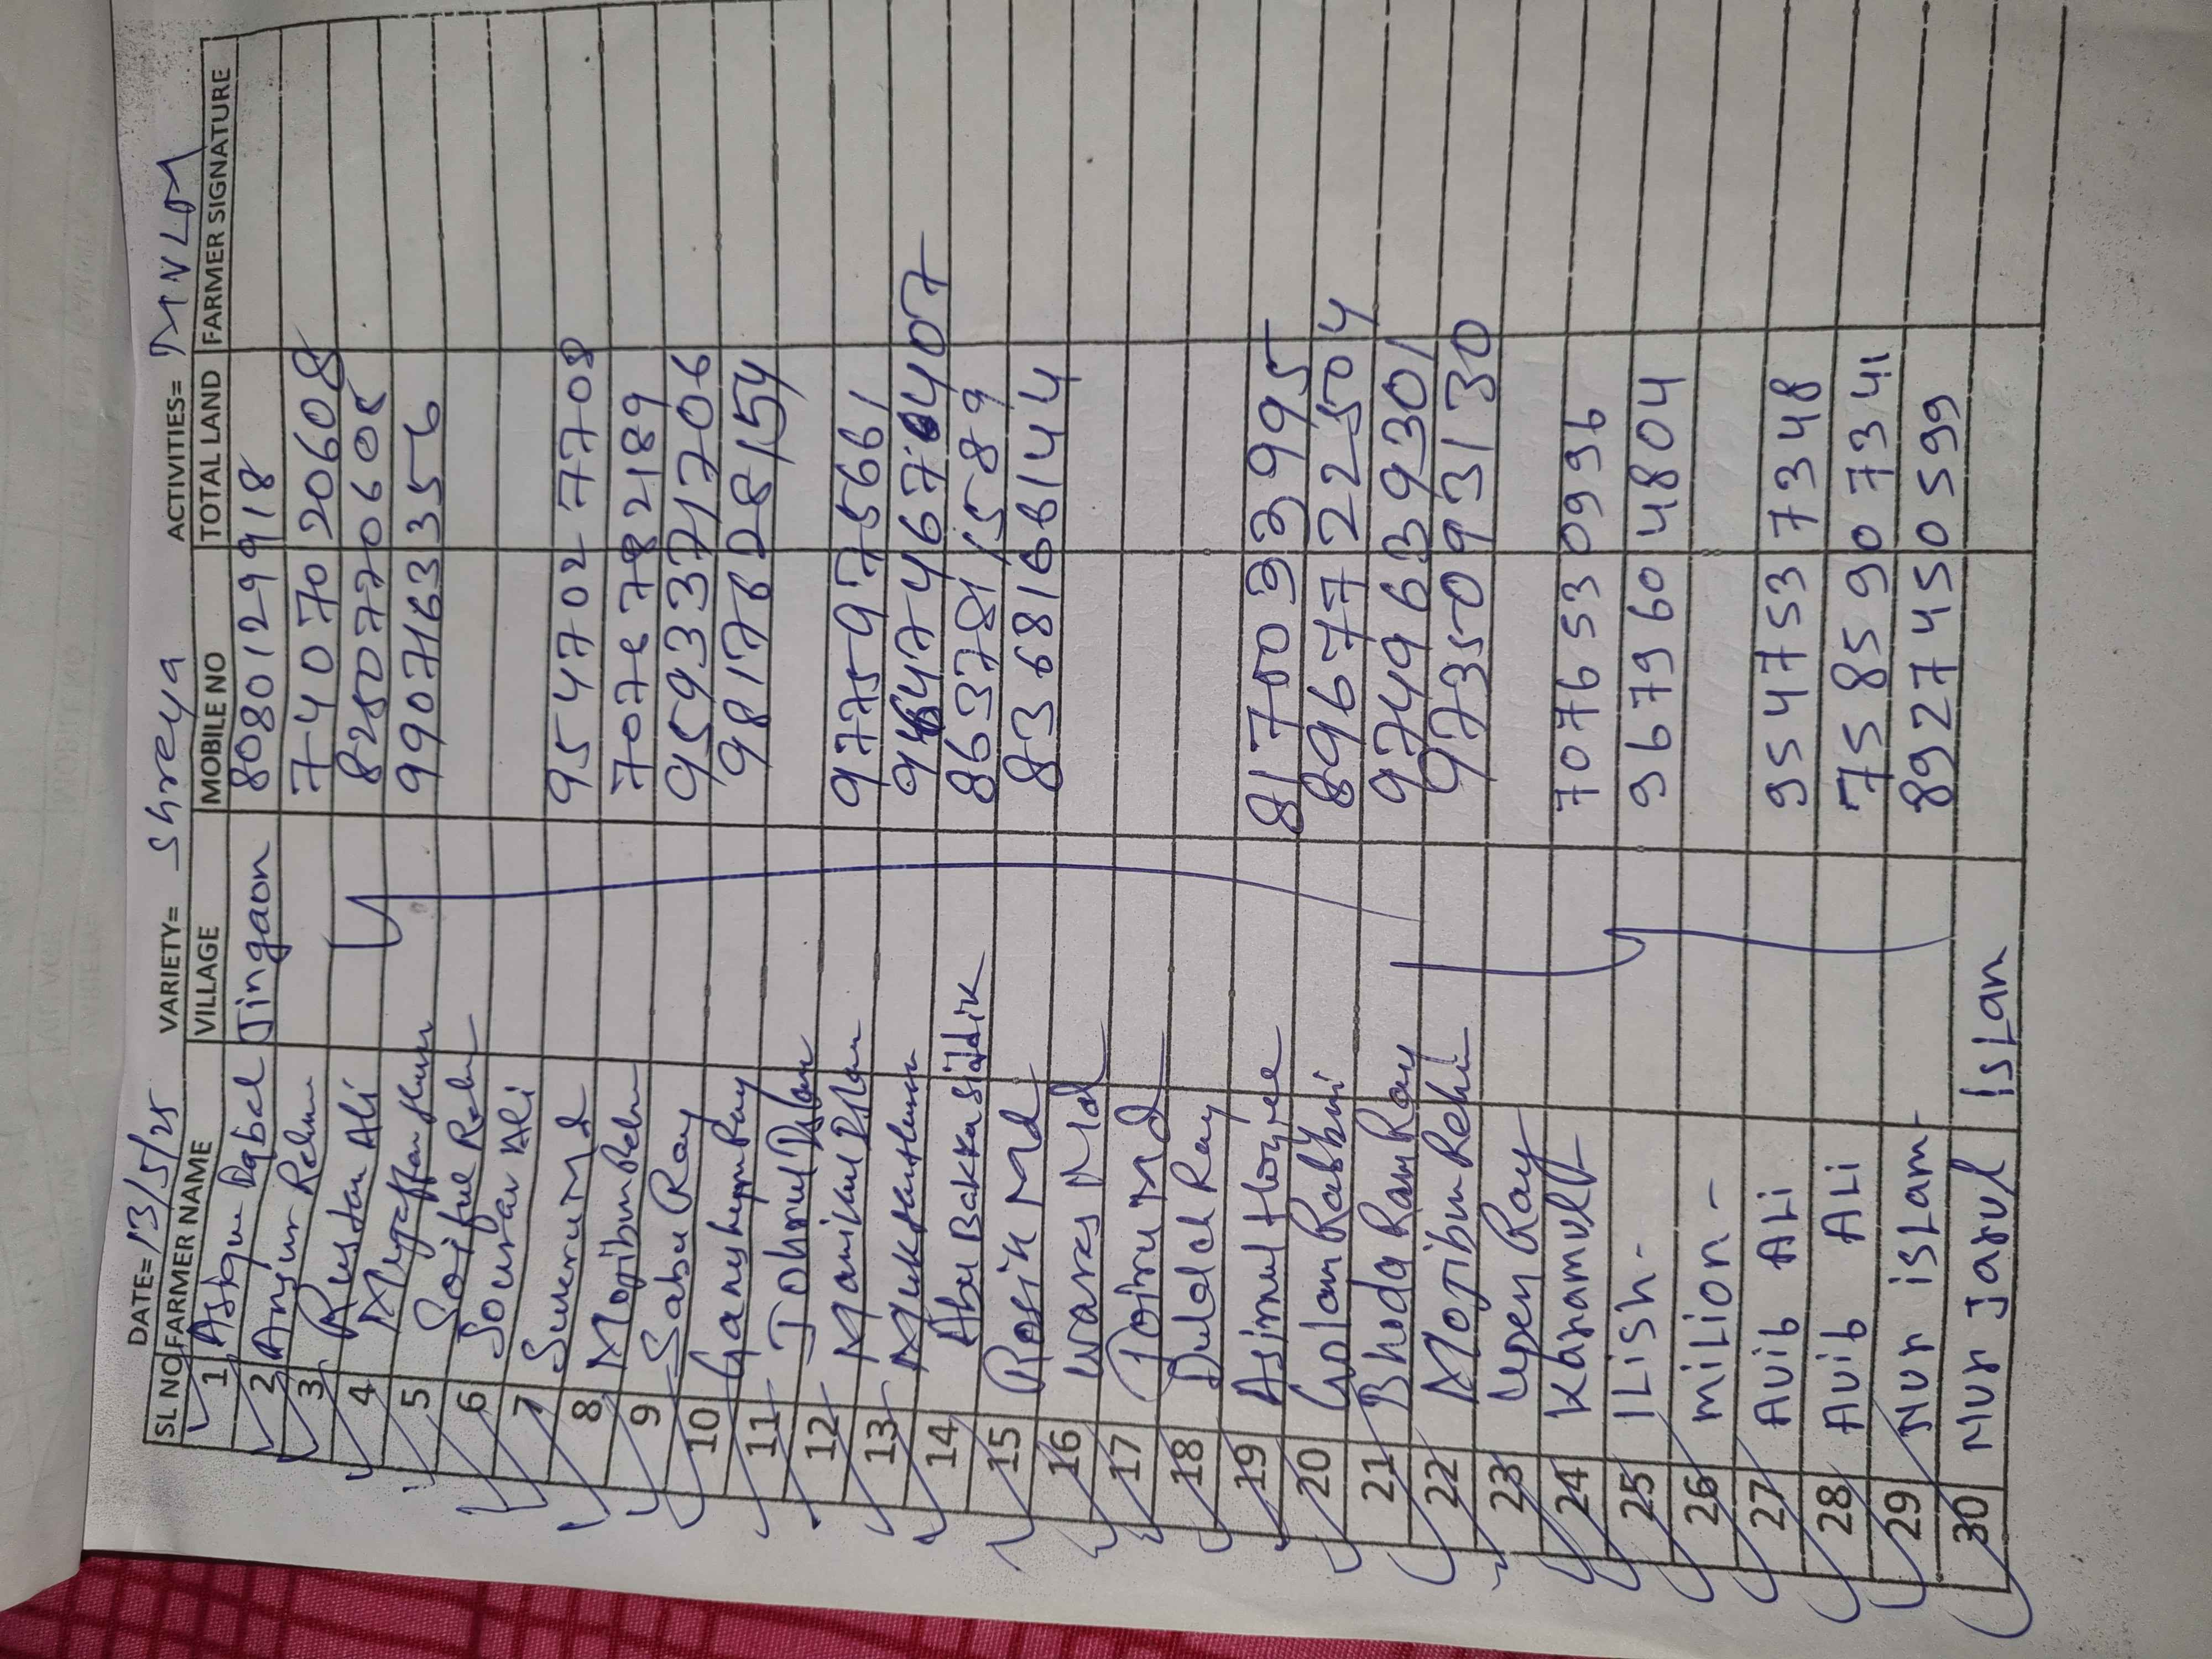 DATE= 13/5/25 VARIETY= Shreya ACTIVITIES=
SL NO FARMER NAME VILLAGE MOBILE NO TOTAL LAND FARMER SIGNATURE
1 Asique Iqbal Jingaon 8080129918
2 Anjur Rehm 7407020608
3 Rustam Ali 8250770608
4 9907163356
5 Soriful Rehm
6 Ali
7 Md 9547027708
8 Mojibur Rehm 7076782189
9 Sabu Roy 9593371706
10 Ray
11
12 Manikul Islam 9775975661
13
14 Abu Bakkar Siddik 863781589
15 Rosik Md 8368166144
16 Md
17 Md
18 Dulal Ch Ray
19 Asimul Hoque 8175039995
20 Golam Rabbini 8967722504
21 Bhoda Ram Roy 9749639301
22 Mojibur Rehm 9735093130
23 Upen Ray
24 7076530996
25 ILish - 9679604804
26 miLion -
27 Auib ALi 9547537348
28 Auib ALi 7585907341
29 Nur isLam - 8927450599
30 Nur Jarul IsLam